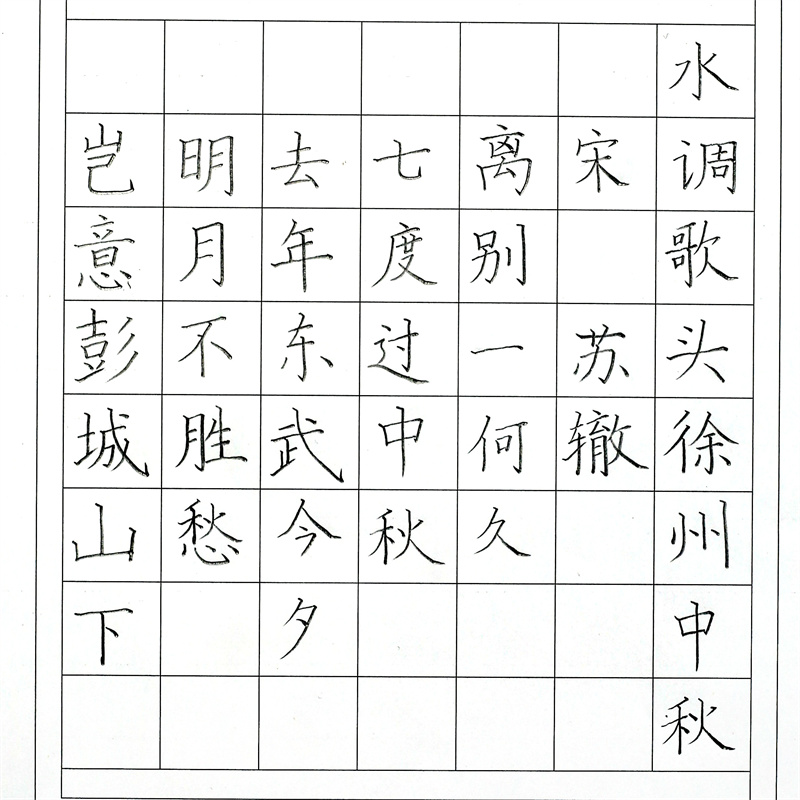 水调歌头徐州中秋
宋 苏辙
离别一何久
七度过中秋
去年东武今夕
明月不胜愁
岂意彭城山下